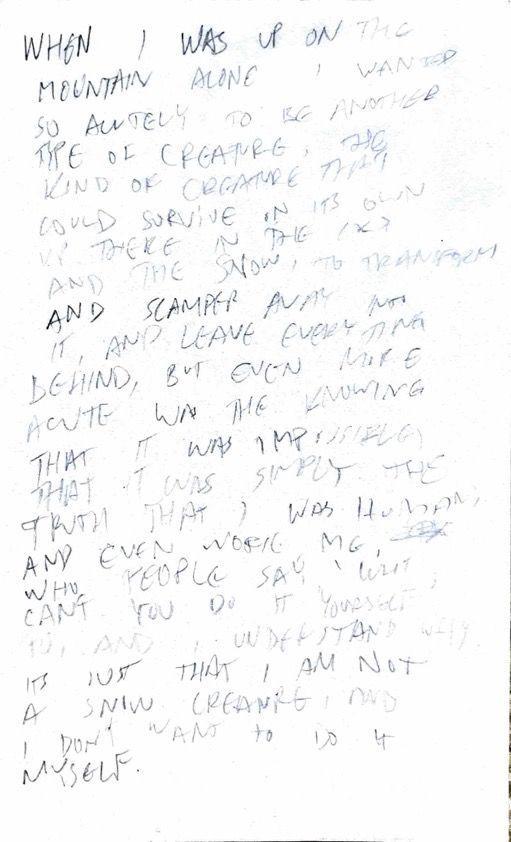 WHEN I WAS UP ON THE
MOUNTAIN ALONE I WANTED
SO ACUTELY TO BE ANOTHER
TYPE OF CREATURE, THE
KIND OF CREATURE THAT
COULD SURVIVE IN ITS OWN
UP THERE IN THE
AND THE SNOW, TO TRANSFORM
AND SCAMPER AWAY INTO
IT, AND LEAVE EVERYTHING
BEHIND, BUT EVEN MORE
ACUTE WAS THE KNOWING
THAT IT WAS IMPOSSIBLE,
THAT IT WAS SIMPLY THE
TRUTH THAT I WAS HUMAN,
AND EVEN WORSE ME,
WHO PEOPLE SAY 'WHY
CANT YOU DO IT YOURSELF'
TO, AND I UNDERSTAND WHY
ITS JUST THAT I AM NOT
A SNOW CREATURE, AND
I DON'T WANT TO DO IT
MYSELF.